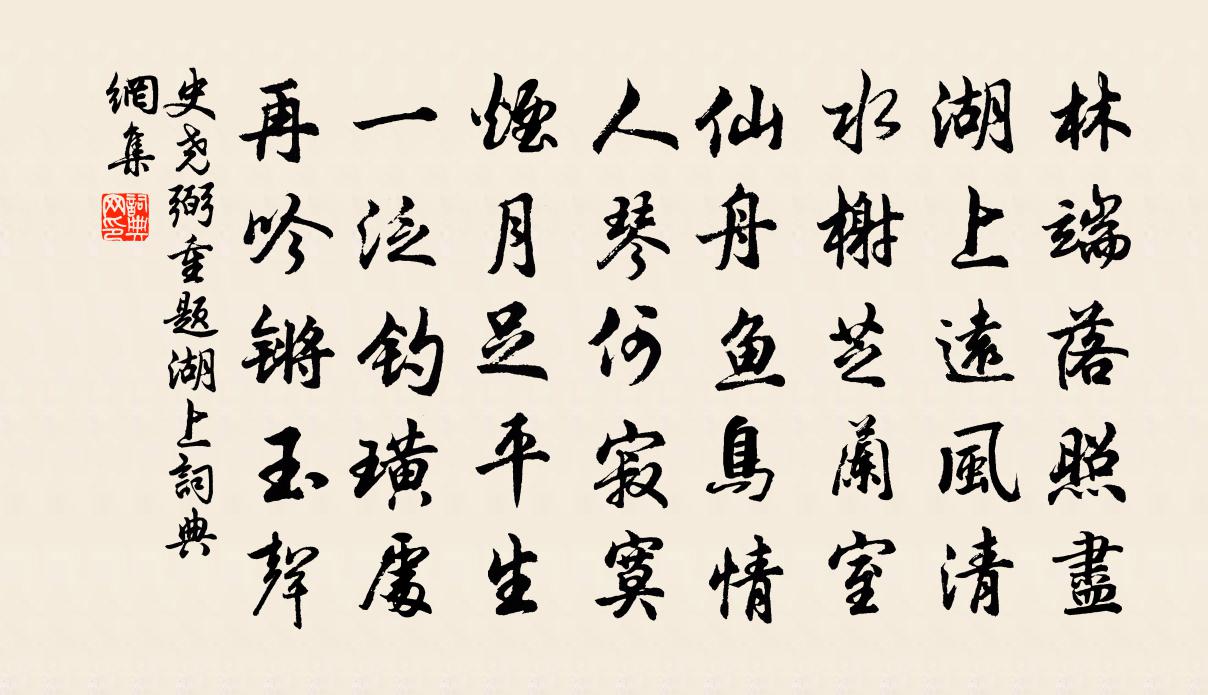 林端落照盡
湖上遠風清
水榭芝蘭室
仙舟魚鳥情
人琴何寂寞
煙月足平生
一泛釣璜處
再吟鏘玉聲
史尧弼重题湖上詞典
網集
詞典
网印